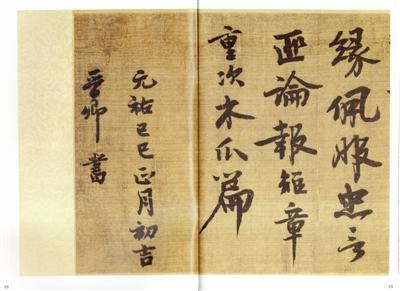 緣佩服忠言
匪論報短章
重次木瓜篇
元祐己巳正月初吉
晉卿書